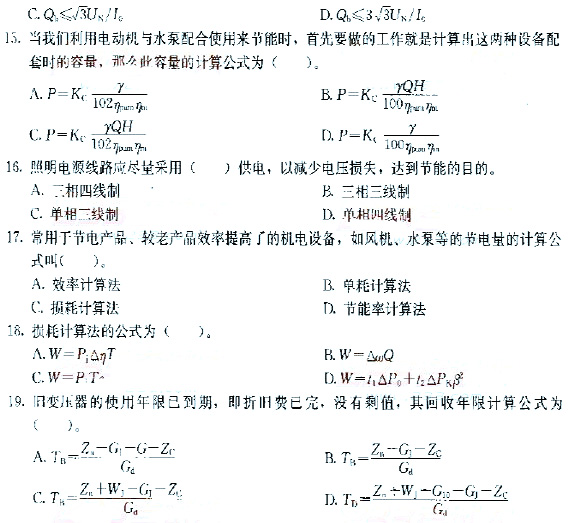 C. Qb≤√3UN/I0 D. Qb≤3√3UN/I0
15. 当我们利用电动机与水泵配合使用来节能时，首先要做的工作就是计算出这两种设备配
套时的容量，那么此容量的计算公式为（ ）。
A. P=KC γ/(102ηpumηm) B. P=KC γQH/(100ηpumηm)
C. P=KC γQH/(102ηpumηm) D. P=KC γ/(100ηpumηm)
16. 照明电源线路应尽量采用（ ）供电，以减少电压损失，达到节能的目的。
A. 三相四线制 B. 三相三线制
C. 单相三线制 D. 单相四线制
17. 常用于节电产品、较老产品效率提高了的机电设备，如风机、水泵等的节电量的计算公
式叫（ ）。
A. 效率计算法 B. 单耗计算法
C. 损耗计算法 D. 节能率计算法
18. 损耗计算法的公式为（ ）。
A. W=PjΔηT B. W=ΔωQ
C. W=P T D. W=t1ΔP0+t2ΔPKβ²
19. 旧变压器的使用年限已到期，即折旧费已完，没有剩值，其回收年限计算公式为
（ ）。
A. TB=(Zn-GJ-G-ZC)/Gd B. TB=(Zn-GJ-ZC)/Gd
C. TB=(Zn+WJ-GJ-ZC)/Gd D. TB=(Zn+WJ-G10-GJ-ZC)/Gd